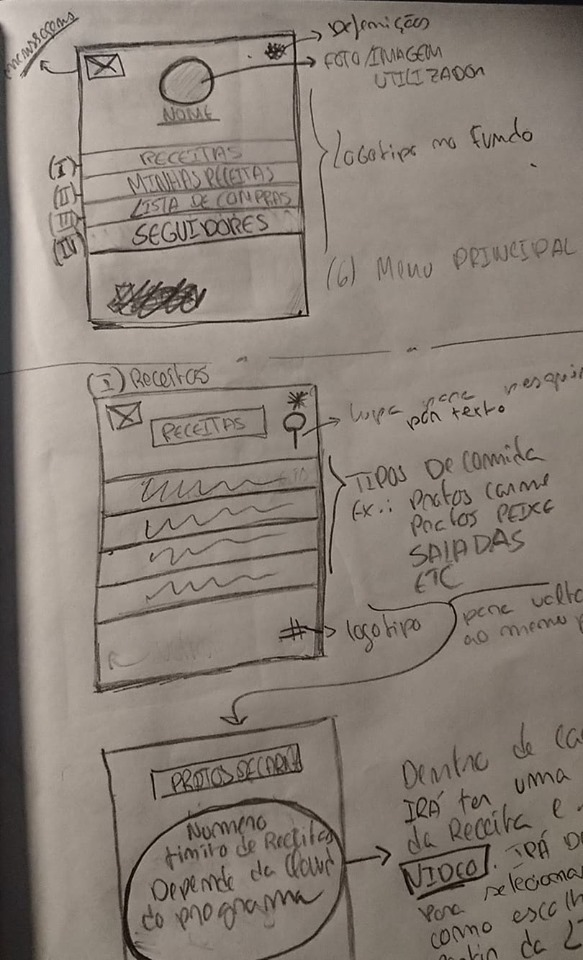 mensagens
Definições
FOTO/IMAGEM
UTILIZADOR
NOME
Logotipo no fundo
(I) RECEITAS
(II) MINHAS RECEITAS
(III) LISTA DE COMPRAS
(IV) SEGUIDORES
(6) Menu PRINCIPAL
(I) Receitas
RECEITAS
lupa para pesqui
por texto
TIPOS De comida
Ex.: Pratos carne
Pratos PEIXE
SALADAS
ETC
logotipo
para volta
ao menu p
PRATOS DE CARNE
Numero
limite de Receitas
Depende da Cloud
do programa
Dentro de ca
IRÁ ter uma
da Receita e
VIDEO. IRÁ D
Para seleciona
como escolh
da L